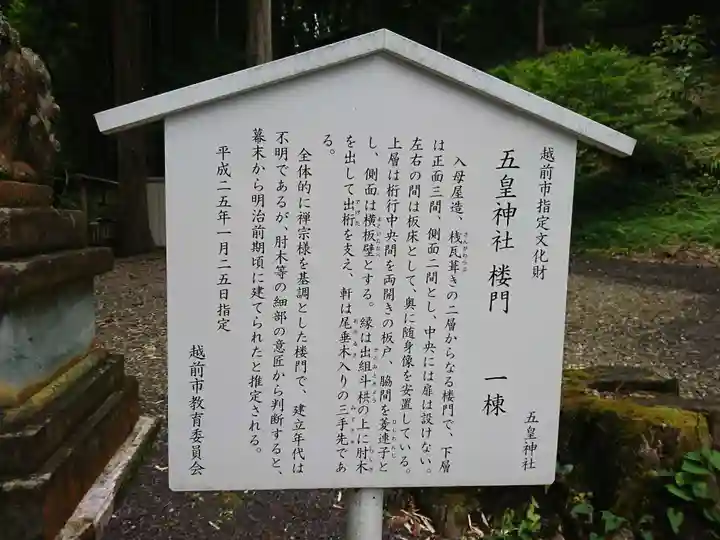 越前市指定文化財
五皇神社 楼門 一棟
五皇神社
入母屋造、桟瓦葺きの二層からなる楼門で、下層
は正面三間、側面二間とし、中央には扉は設けない。
左右の間は板床として、奥に随身像を安置している。
上層は桁行中央間を両開きの板戸、脇間を菱連子と
し、側面は横板壁とする。縁は出組斗栱の上に肘木
を出して出桁を支え、軒は尾垂木入りの三手先であ
る。
全体的に禅宗様を基調とした楼門で、建立年代は
不明であるが、肘木等の細部の意匠から判断すると、
幕末から明治前期頃に建てられたと推定される。
平成二五年一月二五日指定
越前市教育委員会